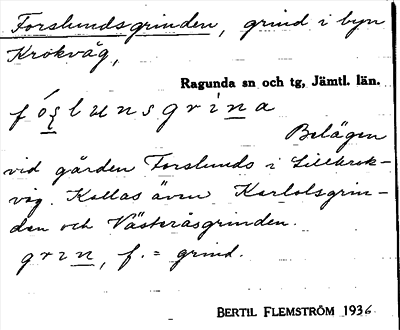 Forslundsgrinden, grind i byn
Krokvåg,
Ragunda sn och tg, Jämtl. län.
fó̱şlunsgrin̲a
Belägen
vid gården Forslunds i Lillkrok-
våg. Kallas även Karlolsgrin-
den och Västeråsgrinden.
grın̲, f. = grind.
BERTIL FLEMSTRÖM 1936